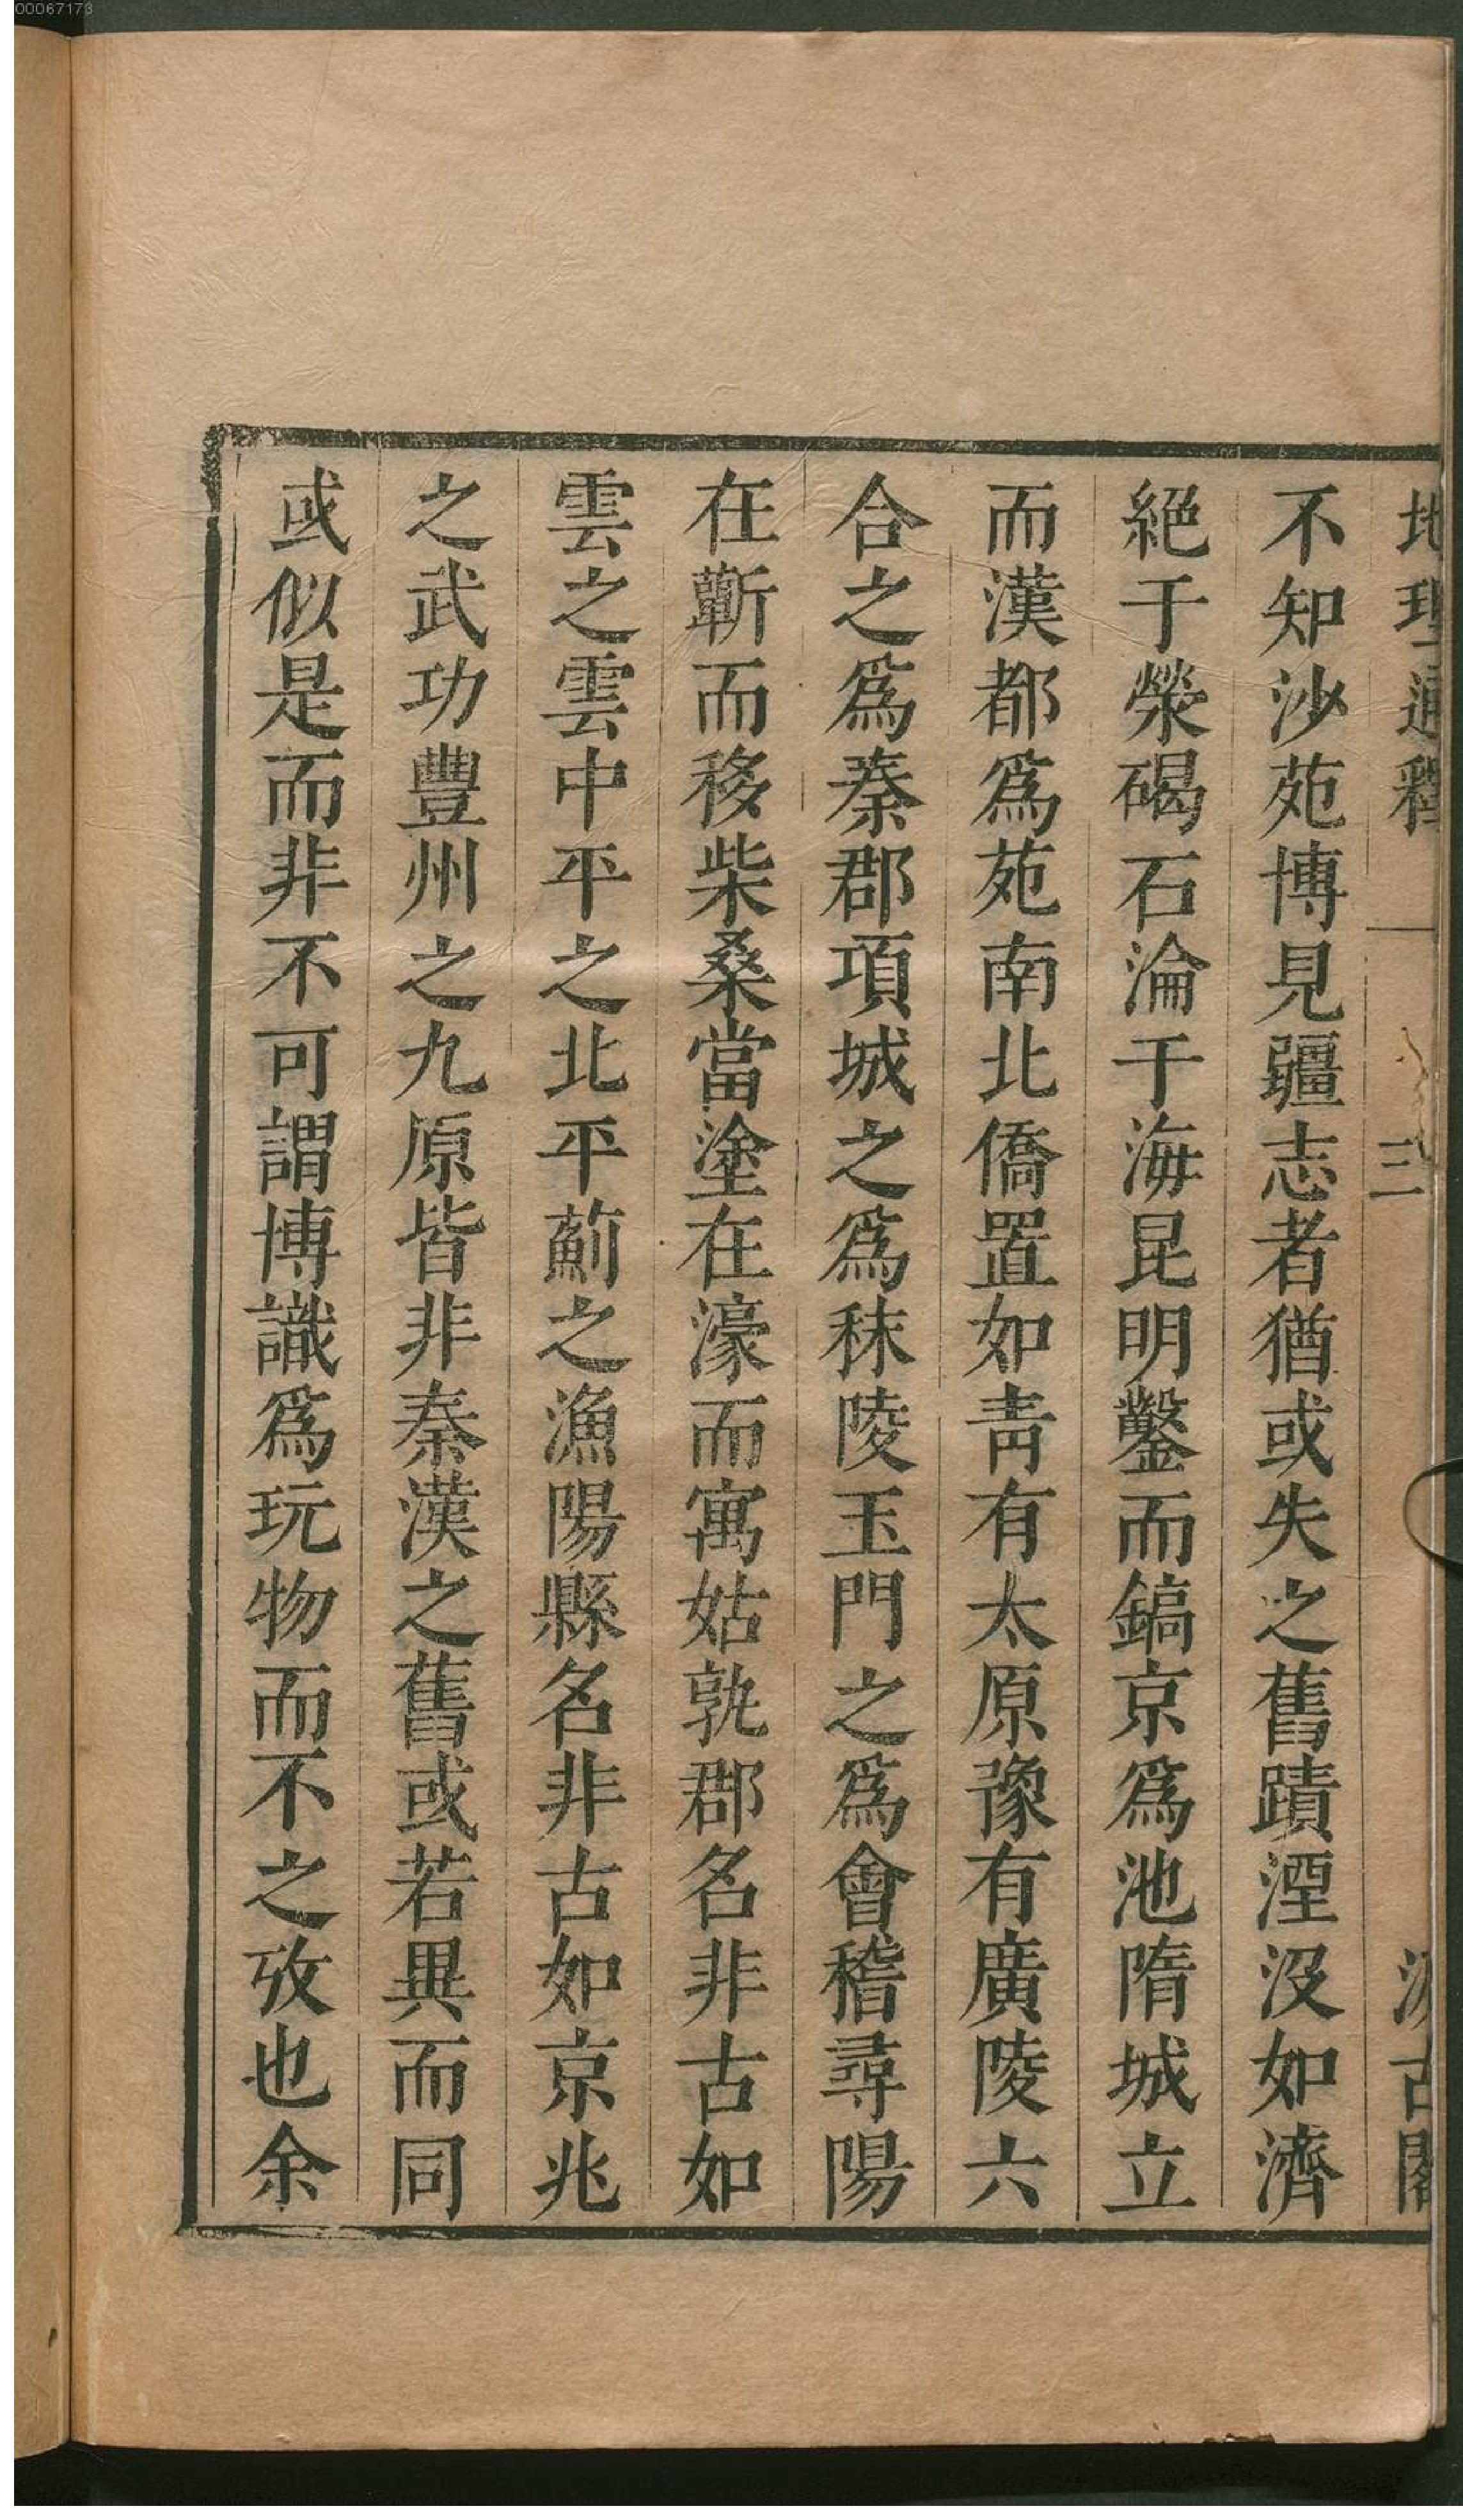 00067173
地理通釋 三 汲古閣
不知沙苑博見疆志者猶或失之舊蹟湮没如濟
絕于滎碣石淪于海昆明鑿而鎬京爲池隋城立
而漢都爲苑南北僑置如靑有太原豫有廣陵六
合之爲秦郡項城之爲秣陵玉門之爲會稽尋陽
在蘄而移柴桑當塗在濠而寓姑孰郡名非古如
雲之雲中平之北平薊之漁陽縣名非古如京兆
之武功豐州之九原皆非秦漢之舊或若異而同
或似是而非不可謂博識爲玩物而不之攷也余